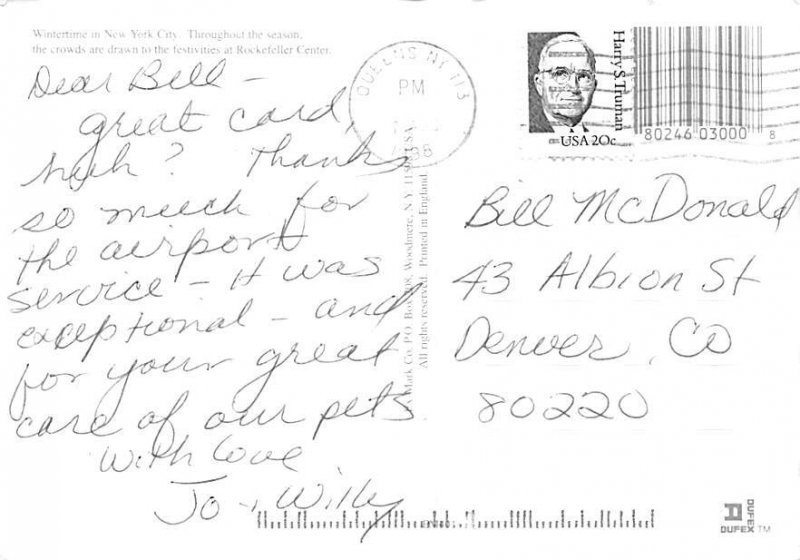 Wintertime in New York City. Throughout the season,
the crowds are drawn to the festivities at Rockefeller Center.
Dear Bill -
great card,
huh? Thanks
so much for
the airport
service - it was
exceptional - and
for your great
care of our pets
With love
Jo + Willy
QUEENS NY 113
PM
Harry S. Truman
USA 20c
80246 03000 8
Bill McDonald
43 Albion St
Denver, CO
80220
Mark Co. P.O. Box Woodmere, N.Y. USA
All rights reserved. Printed in England
DUFEX
DUFEX TM